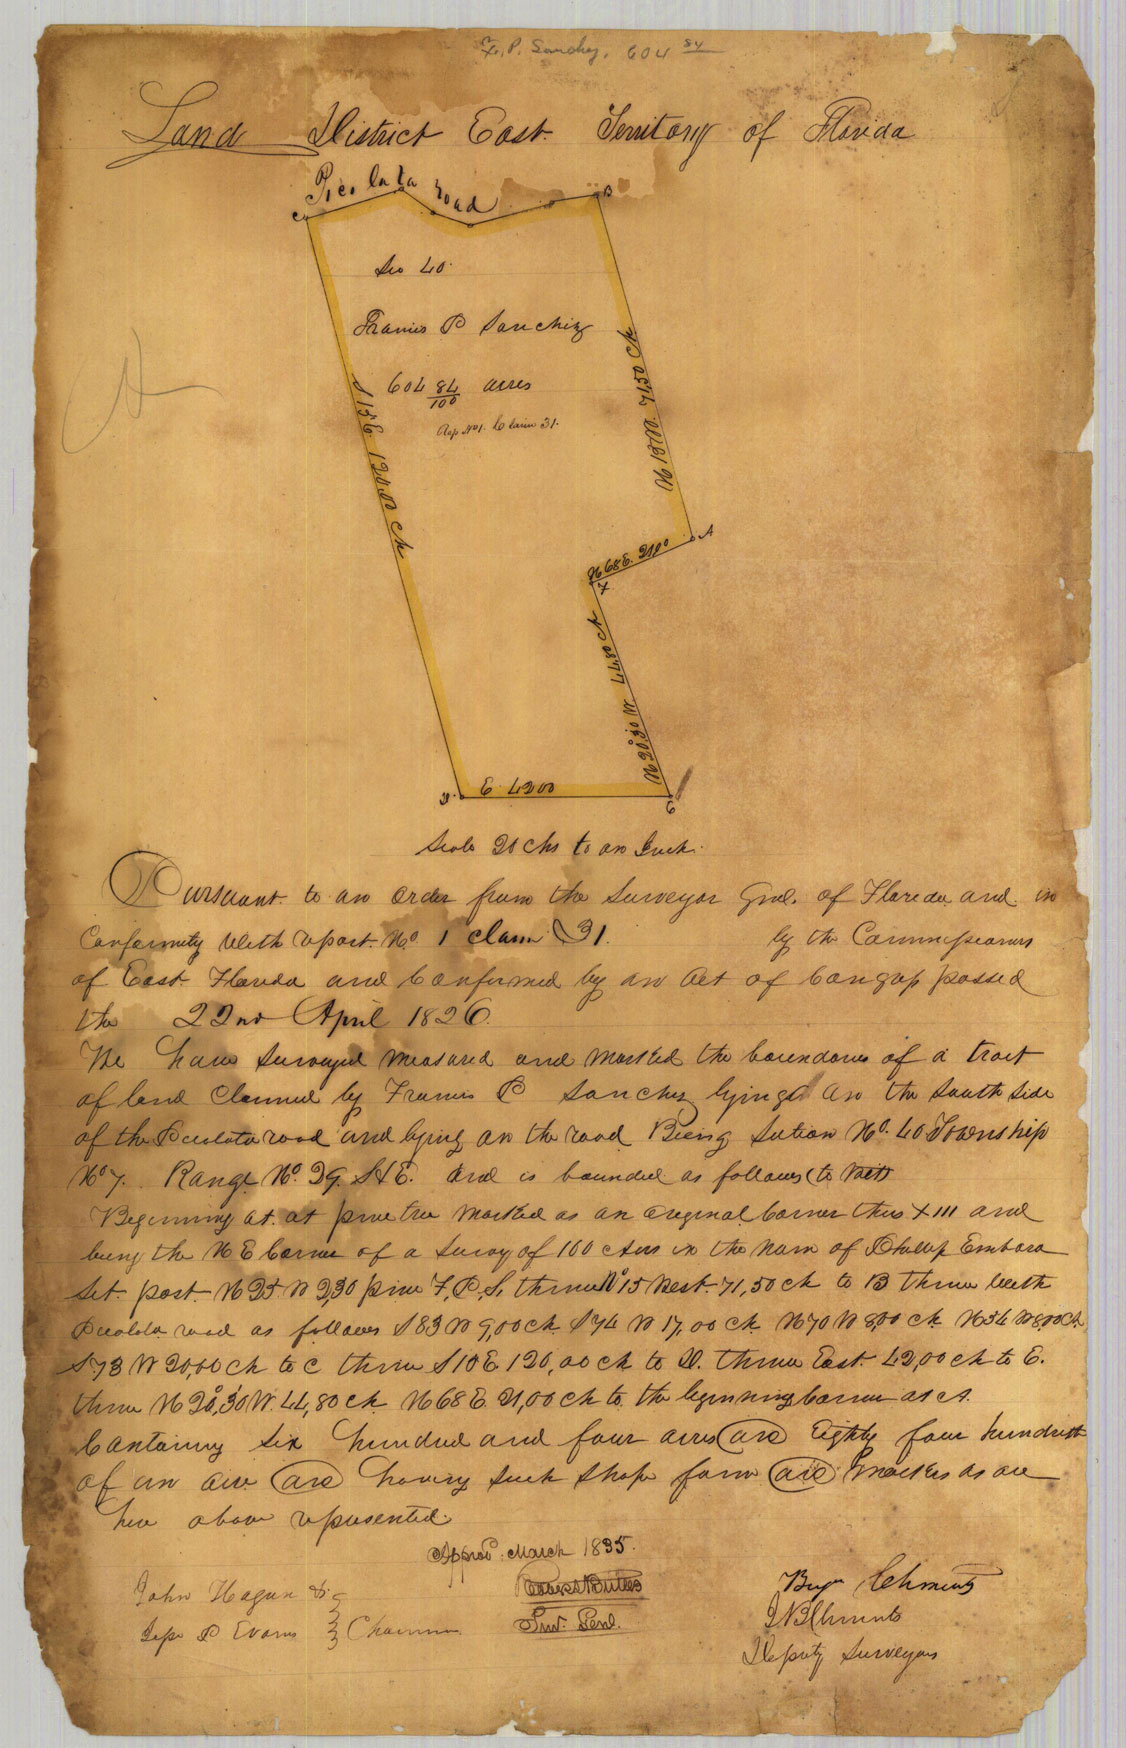 F. P. Sanchez. 604 84
Land District East Territory of Florida
Picolata road
C
B
Sec 40
Francis P Sanchez
604 84/100 acres
Rep No 1. Claim 31.
S 15 E 120,00 Ch
N 15 W. 71,50 Ch
A
N 68 E. 2100
X
N 20°,30 W. 44,80 Ch
D
E 4200
E
Scale 20 chs to an Inch.
Pursuant to an order from the Surveyor Genl. of Florida and in
Conformity With report No. 1 claim 31. by the Commissioners
of East Florida and Confirmed by an Act of Congress passed
the 22nd April 1826.
We have Surveyed measured and marked the boundaries of a tract
of land Claimed by Francis P Sanchez lying on the South Side
of the Picolata road and lying on the road Being Section No. 40 Township
No 7. Range No. 29. S & E. and is bounded as follows (to Wit)
Beginning at at pine tree marked as an original Corner thus X III and
being the N E Corner of a Survey of 100 acres in the name of Phillip Embara
Set post N 25 W 2,30 pine F, P, S, thence N 15 West 71,50 ch to B thence With
Picolata road as follows S 83 W 9,00 ch S 74 W 17,00 ch N 70 W 8,00 ch N 54 W 8,00 Ch
S 73 W 20,00 ch to C thence S 15 E 120,00 ch to D. thence East 42,00 ch to E.
thence N 20°,30 W. 44,80 ch N 68 E. 21,00 ch to the beginning corner at A.
Containing Six hundred and four acres and Eighty four hundredth
of an acre and having such shape form and marks as are
here above represented.
Approvd. March 1835.
Robert Butler
Sur. Genl.
John Hagan &
P Evans } Chainmen
Benj Clements
J B Clements
Deputy Surveyors